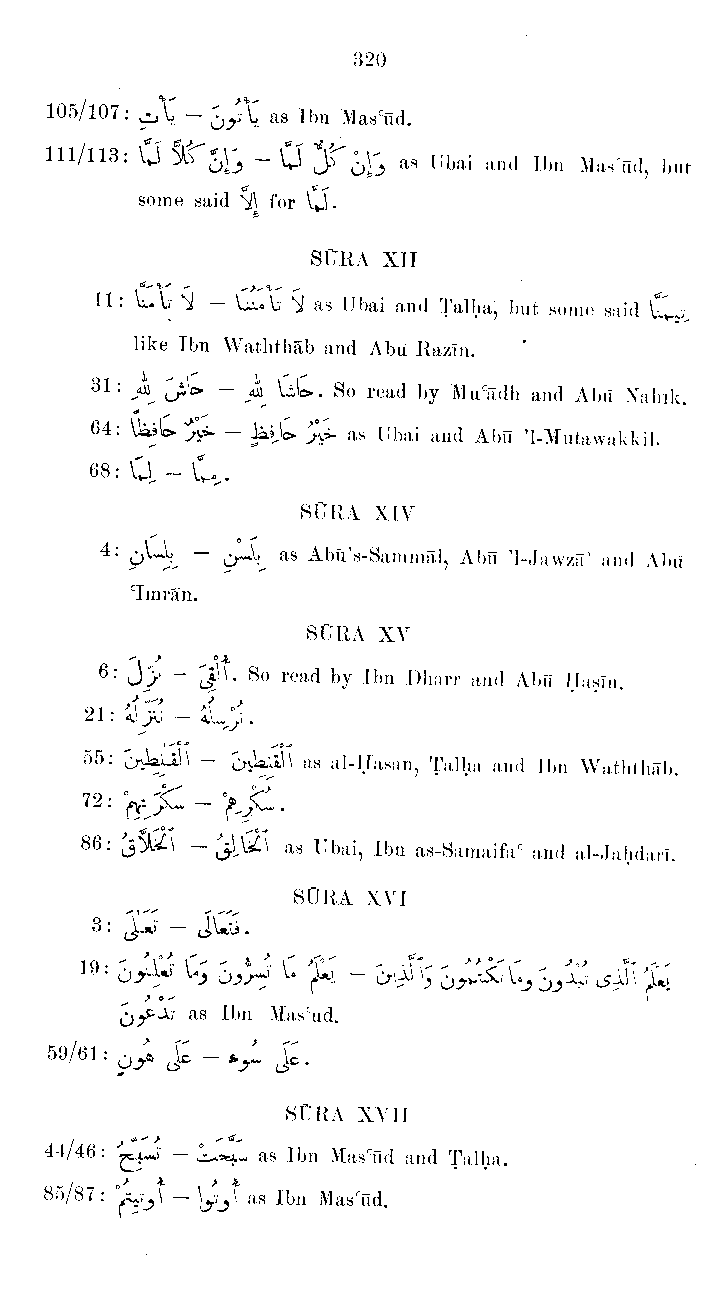 320
105/107: يَأْتِ — يَأْتُونَ as Ibn Masʿūd.
111/113: وَإِنَّ كُلًّا لَمَّا — وَإِنْ كُلٌّ لَمَّا as Ubai and Ibn Masʿūd, but
some said إِلَّا for لَمَّا.
SŪRA XII
11: لَا تَأْمَنَّا — لَا تَأْمَنُنَا as Ubai and Ṭalḥa, but some said تِيمَنَّا
like Ibn Waththāb and Abū Razīn.
31: حَاشَ لِلّٰهِ — حَاشًا لِلّٰهِ. So read by Muʿādh and Abū Nahīk.
64: خَيْرٌ حَافِظًا — خَيْرُ حَافِظٍ as Ubai and Abū ’l-Mutawakkil.
68: لِمَا — مِمَّا.
SŪRA XIV
4: بِلِسَانِ — بِلِسْنِ as Abū’s-Sammāl, Abū ’l-Jawzā’ and Abū
ʿImrān.
SŪRA XV
6: نُزِّلَ — أُلْقِىَ. So read by Ibn Dharr and Abū Ḥaṣīn.
21: نُنَزِّلُهُ — نُرْسِلُهُ.
55: ٱلْقَٰنِطِينَ — ٱلْقَنِطِينَ as al-Ḥasan, Ṭalḥa and Ibn Waththāb.
72: سَكْرَتِهِمْ — سُكْرِهِمْ.
86: ٱلْخَلَّاقُ — ٱلْخَالِقُ as Ubai, Ibn as-Samaifaʿ and al-Jaḥdarī.
SŪRA XVI
3: تَعَٰلَىٰ — فَتَعَالَى.
19: يَعْلَمُ مَا تُسِرُّونَ وَمَا تُعْلِنُونَ — يَعْلَمُ ٱلَّذِى تُبْدُونَ وَمَا تَكْتُمُونَ وَٱلَّذِينَ
تَدْعُونَ as Ibn Masʿūd.
59/61: عَلَى هُونٍ — عَلَى سُوءٍ.
SŪRA XVII
44/46: تُسَبِّحُ — سَبَّحَتْ as Ibn Masʿūd and Ṭalḥa.
85/87: أُوتِيتُمْ — أُوتُوا as Ibn Masʿūd.